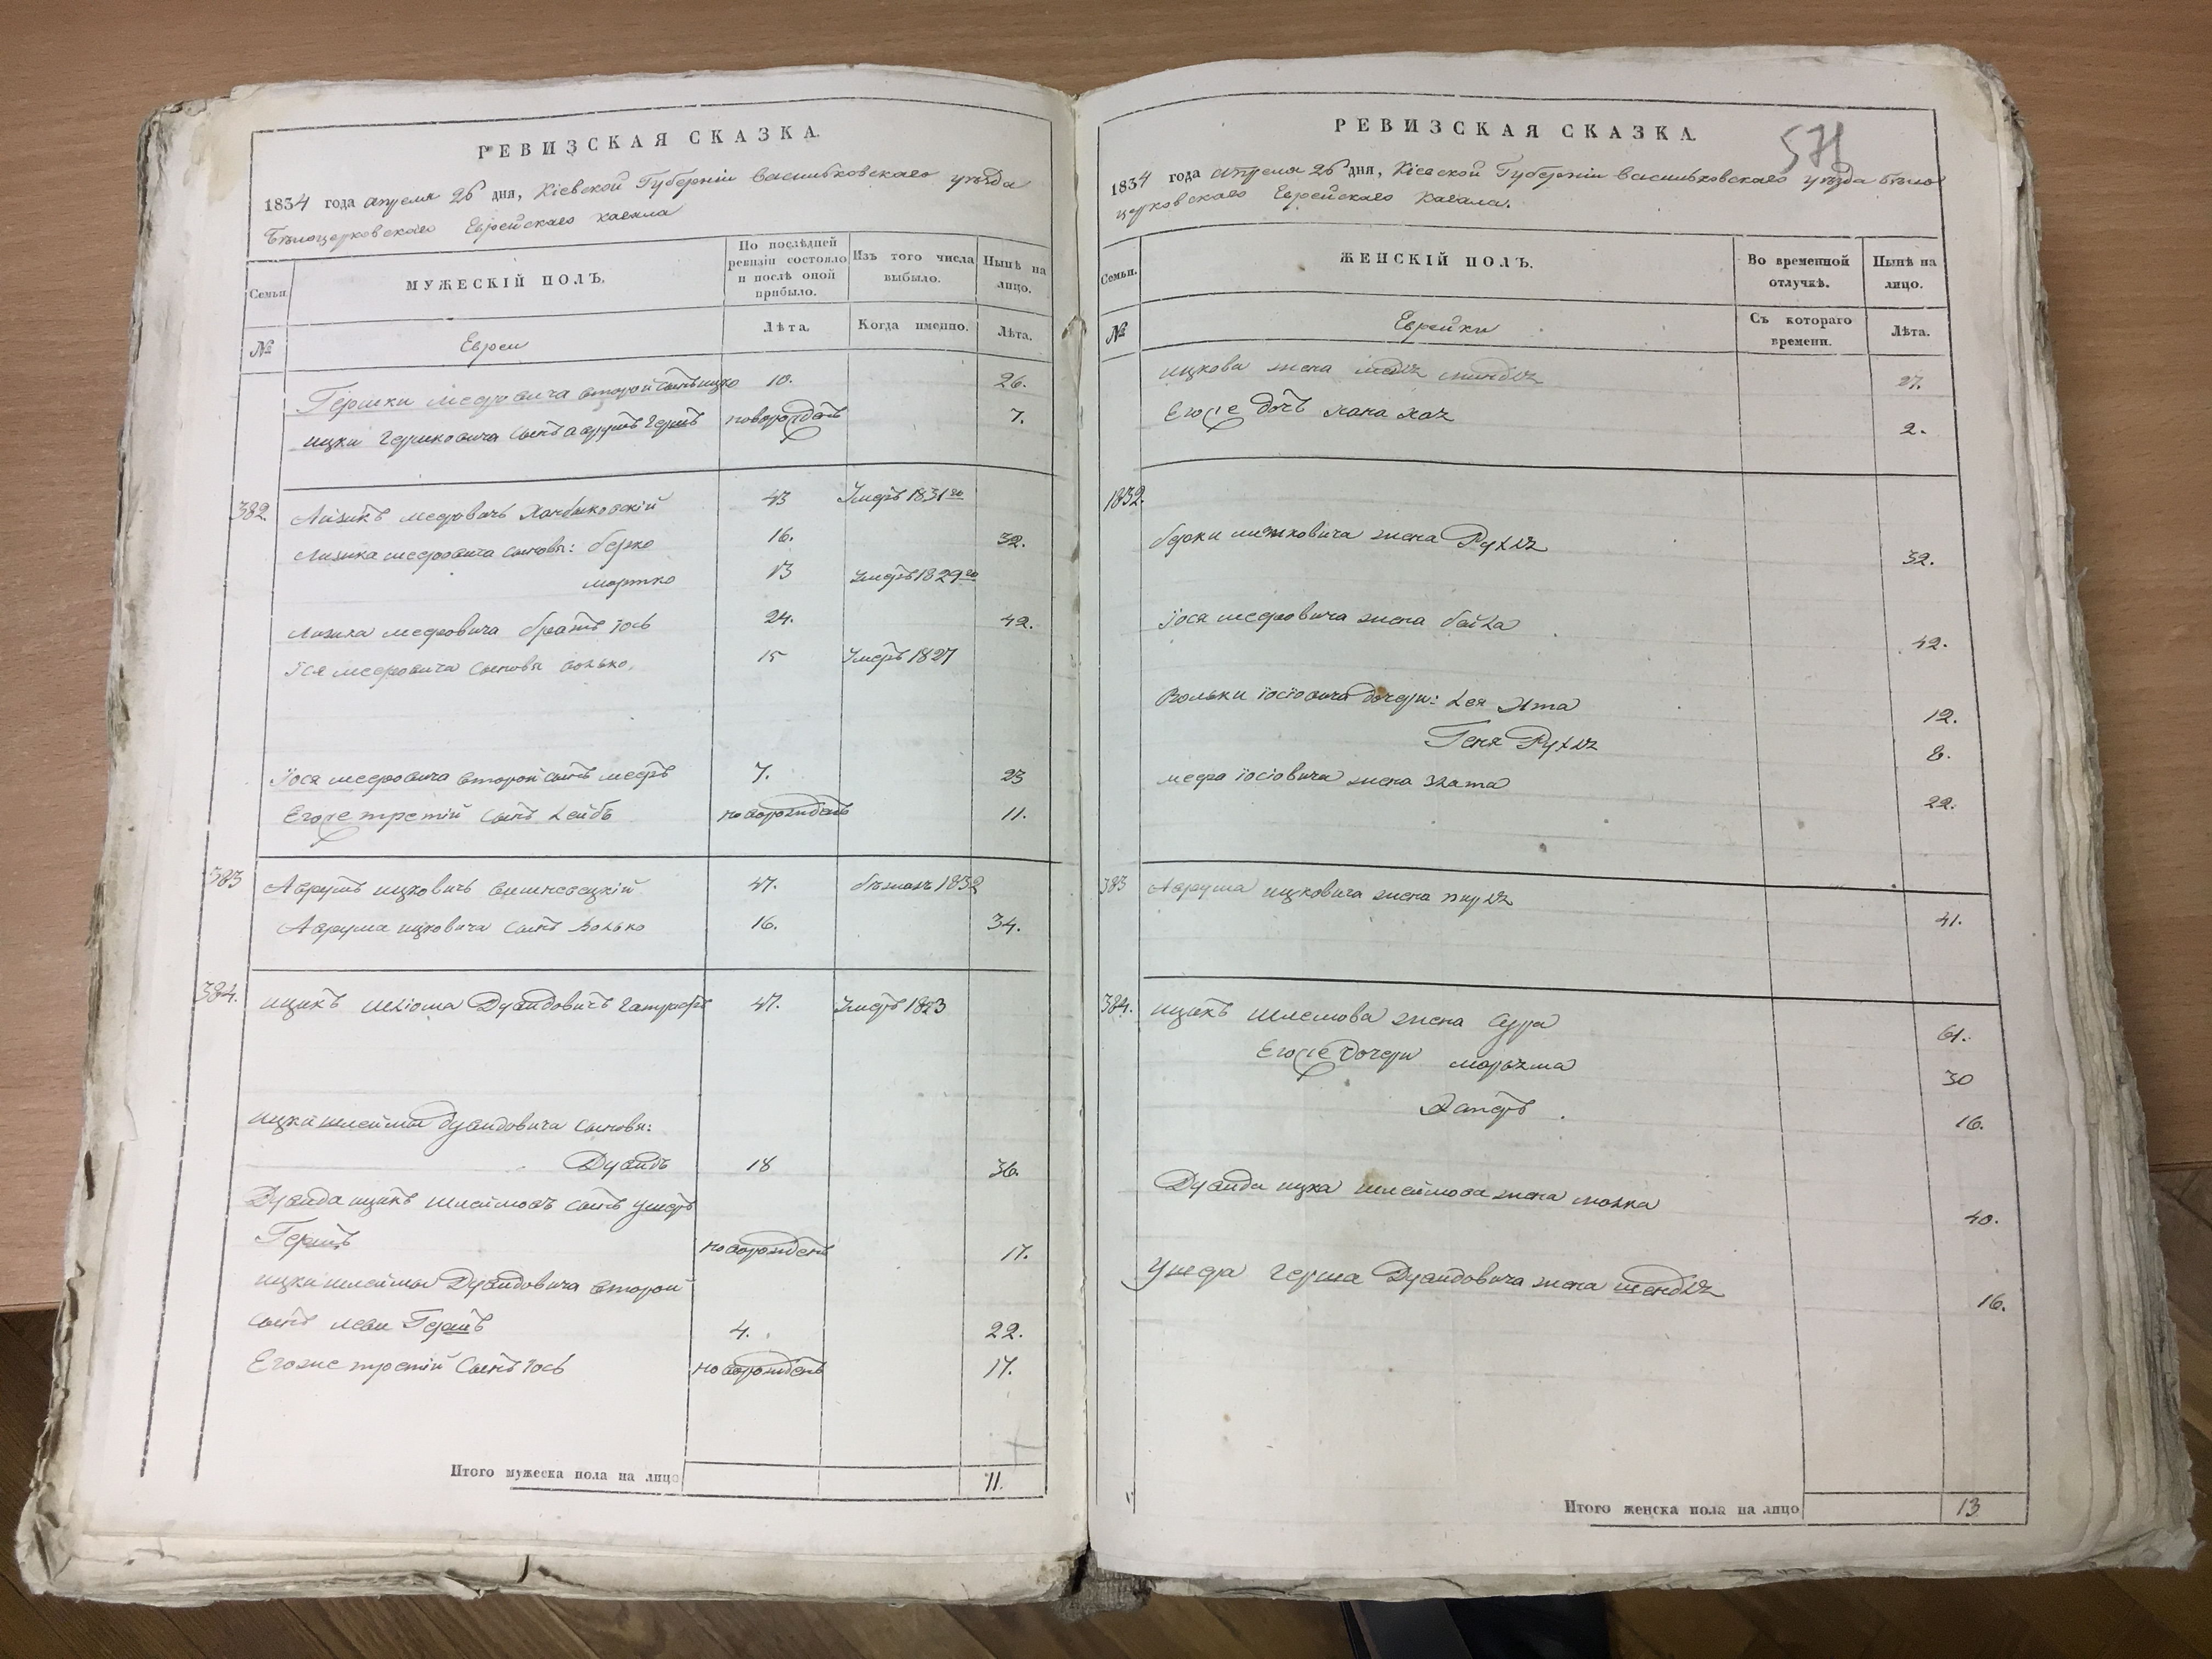 РЕВИЗСКАЯ СКАЗКА.
1834 года апреля 26 дня, Кіевской Губерніи васильковскаго уѣзда
Бѣлоцерковскаго Еврейскаго кагала
Семьи.
МУЖЕСКІЙ ПОЛЪ.
По послѣдней ревизіи состояло и послѣ оной прибыло.
Изъ того числа выбыло.
Нынѣ на лицо.
№
Евреи
Лѣта.
Когда именно.
Лѣта.
Гершки мееровича второй сынъ ицко 10. 26.
ицки Гершковича сынъ аврумъ Гершъ новорожденъ 7.
382. Айзикъ мееровичъ 43 Умеръ 1831го
Айзика мееровича сыновья: берко 16. 32.
мортко 13 Умеръ 1829го
Айзика мееровича братъ іось 24. 42.
Іося мееровича сыновья волько. 15 Умеръ 1827
Іося мееровича второй сынъ мееръ 7. 23
Егоже третій сынъ Лейбъ новорожденъ 11.
383 Аврумъ ицковичъ вишневецкій 47. 1832
Аврума ицковича сынъ Волько 16. 34.
384. ицикъ шліома Дувидовичъ 47. Умеръ 1823
ицки шлеймы Дувидовича сыновья:
Дувидъ 18 36.
Дувида ицикъ шлеймовъ сынъ ушеръ
Гершъ новорожденъ 17.
ицки шлеймы Дувидовича второй
сынъ леви Гершъ 4. 22.
Егоже третій Сынъ іось новорожденъ 17.
Итого мужеска пола на лицо 11.
РЕВИЗСКАЯ СКАЗКА.
571
1834 года апреля 26 дня, Кіевской Губерніи васильковскаго уѣзда бѣло
церковскаго Еврейскаго кагала.
Семьи.
ЖЕНСКІЙ ПОЛЪ.
Во временной отлучкѣ.
Нынѣ на лицо.
№
Еврейки
Съ котораго времени.
Лѣта.
ицкова жена 27.
Егоже дочь хана хая 2.
1832.
берки жена Рухля 32.
Іося мееровича жена бейла 42.
Вольки іосіовича дочери: Лея Ита 12.
Геня Рухля 8.
меера іосіовича жена злата 22.
383 Аврума ицковича жена перля 41.
384. ицикъ шлемова жена сура 61.
Егоже дочери марьяма 30
16.
Дувида ицка шлеймова жена малка 40.
Ушера герша Дувидовича жена шендля 16.
Итого женска пола на лицо 13